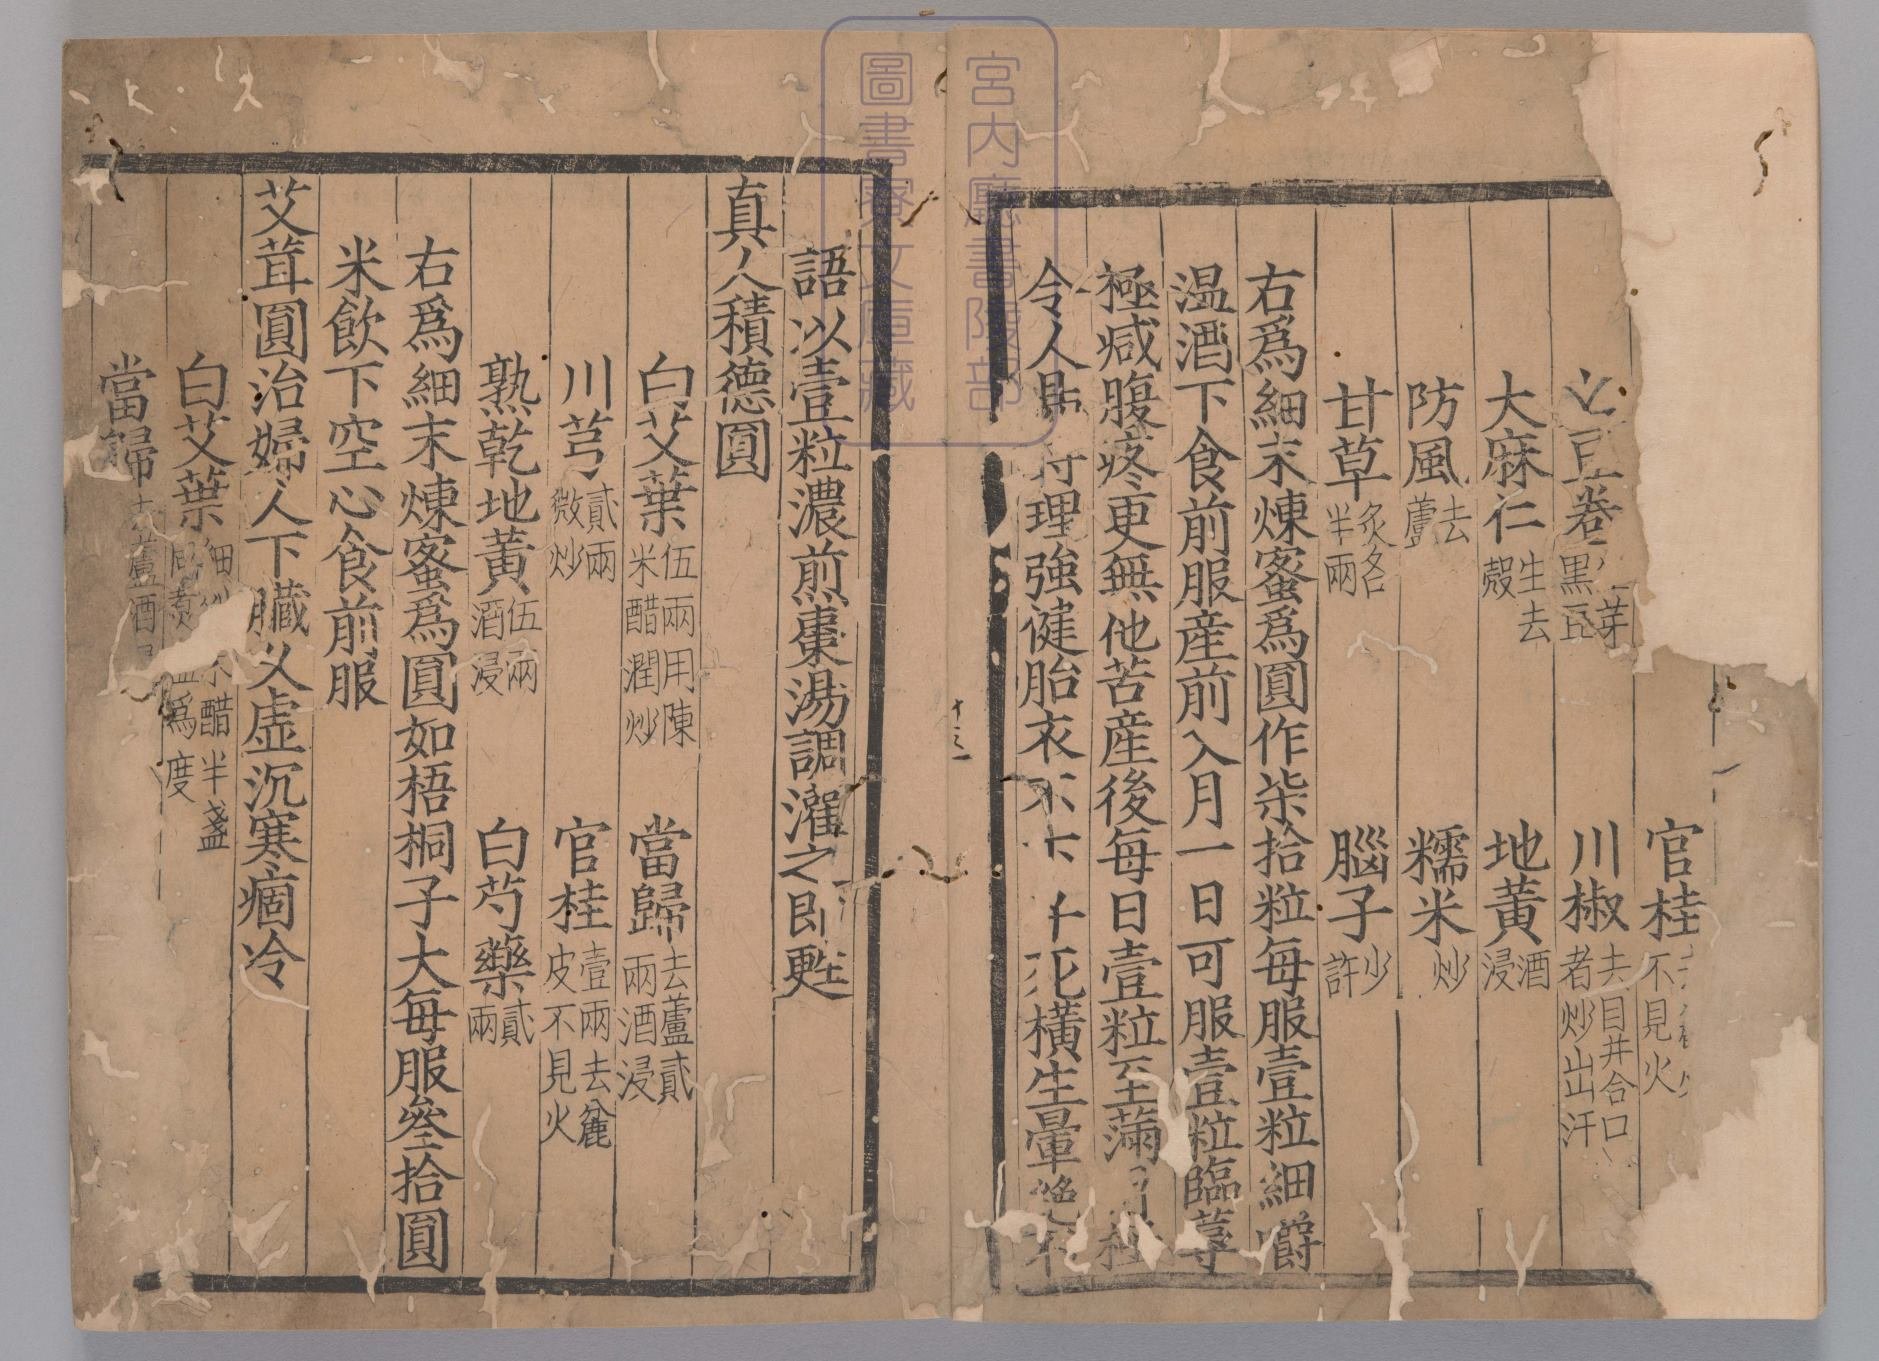 官桂不見火
豆卷黑豆芽 川椒去目并合口者炒出汗
大麻仁生去殼 地黃酒浸
防風去蘆 糯米炒
甘草炙各半兩 腦子少許
右爲細末煉蜜爲圓作柒拾粒每服壹粒細嚼
温酒下食前服産前入月一日可服壹粒臨蓐
極減腹疼更無他苦産後每日壹粒至滿
令人理強健胎衣不死橫生暈
語以壹粒濃煎棗湯調灌之即甦
真人積德圓
白艾葉伍兩用陳米醋潤炒 當歸去蘆貳兩酒浸
川芎貳兩微炒 官桂壹兩去麄皮不見火
熟乾地黃伍兩酒浸 白芍藥貳兩
右爲細末煉蜜爲圓如梧桐子大每服叁拾圓
米飲下空心食前服
艾茸圓治婦人下臟久虛沉寒痼冷
白艾葉醋半盞爲度
當歸去蘆酒
宮内廳書陵部
圖書寮文庫藏